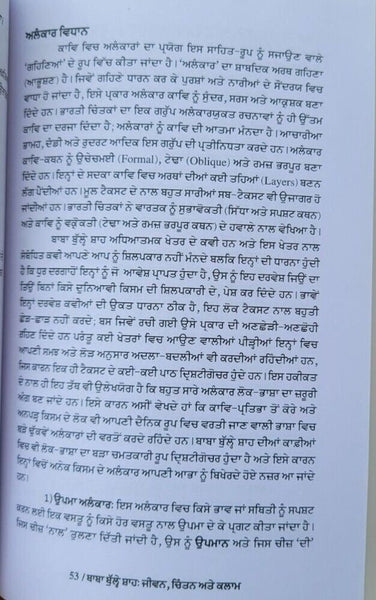 ਅਲੰਕਾਰ ਵਿਧਾਨ
ਕਾਵਿ ਵਿਚ ਅਲੰਕਾਰਾਂ ਦਾ ਪ੍ਰਯੋਗ ਇਸ ਸਾਹਿਤ-ਰੂਪ ਨੂੰ ਸਜਾਉਣ ਵਾਲੇ
'ਗਹਿਣਿਆਂ' ਦੇ ਰੂਪ ਵਿੱਚ ਕੀਤਾ ਜਾਂਦਾ ਹੈ। 'ਅਲੰਕਾਰ' ਦਾ ਸ਼ਾਬਦਿਕ ਅਰਥ ਗਹਿਣਾ
(ਆਭੂਸ਼ਣ) ਹੈ। ਜਿਵੇਂ ਗਹਿਣੇ ਧਾਰਨ ਕਰ ਕੇ ਪੁਰਸ਼ਾਂ ਅਤੇ ਨਾਰੀਆਂ ਦੇ ਸੌਂਦਰਯ ਵਿਚ
ਵਾਧਾ ਹੋ ਜਾਂਦਾ ਹੈ, ਇਸੇ ਪ੍ਰਕਾਰ ਅਲੰਕਾਰ ਕਾਵਿ ਨੂੰ ਸੁੰਦਰ, ਸਰਸ ਅਤੇ ਆਕ੍ਰਸ਼ਕ ਬਣਾ
ਦਿੰਦੇ ਹਨ। ਭਾਰਤੀ ਚਿੰਤਕਾਂ ਦਾ ਇਕ ਗਰੁੱਪ ਅਲੰਕਾਰਯੁਕਤ ਰਚਨਾਵਾਂ ਨੂੰ ਹੀ ਉੱਤਮ
ਕਾਵਿ ਦਾ ਦਰਜਾ ਦਿੰਦਾ ਹੈ; ਅਲੰਕਾਰਾਂ ਨੂੰ ਕਾਵਿ ਦੀ ਆਤਮਾ ਮੰਨਦਾ ਹੈ। ਆਚਾਰੀਆ
ਭਾਮਹ, ਦੰਡੀ ਅਤੇ ਰੁਦਰਟ ਆਦਿਕ ਇਸ ਗਰੁੱਪ ਦੀ ਪ੍ਰਤੀਨਿਧਤਾ ਕਰਦੇ ਹਨ। ਅਲੰਕਾਰ
ਕਾਵਿ-ਕਥਨ ਨੂੰ ਉਚੇਚਮਈ (Formal), ਟੇਢਾ (Oblique) ਅਤੇ ਗਮਜ਼ ਭਰਪੂਰ ਬਣਾ
ਦਿੰਦੇ ਹਨ। ਇਨ੍ਹਾਂ ਦੇ ਸਦਕਾ ਕਾਵਿ ਵਿਚ ਅਰਥਾਂ ਦੀਆਂ ਕਈ ਤਹਿਆਂ (Layers) ਬਣਨ
ਲੱਗ ਪੈਂਦੀਆਂ ਹਨ। ਮੂਲ ਟੈਕਸਟ ਦੇ ਨਾਲ ਬਹੁਤ ਸਾਰੀਆਂ ਸਬ-ਟੈਕਸਟ ਵੀ ਉਜਾਗਰ ਹੋ
ਜਾਂਦੀਆਂ ਹਨ। ਭਾਰਤੀ ਚਿੰਤਕਾਂ ਨੇ ਵਾਰਤਕ ਨੂੰ ਸੁਭਾਵੋਕਤੀ (ਸਿੱਧਾ ਅਤੇ ਸਪਸ਼ਟ ਕਥਨ)
ਅਤੇ ਕਾਵਿ ਨੂੰ ਵਕ੍ਰੋਕਤੀ (ਟੇਢਾ ਅਤੇ ਗਮਜ਼ ਭਰਪੂਰ ਕਥਨ) ਦੇ ਹਵਾਲੇ ਨਾਲ ਵੇਖਿਆ ਹੈ।
ਬਾਬਾ ਬੁੱਲ੍ਹੇ ਸ਼ਾਹ ਅਧਿਆਤਮਕ ਖੇਤਰ ਦੇ ਕਵੀ ਹਨ ਅਤੇ ਇਸ ਖੇਤਰ ਨਾਲ
ਸੰਬੰਧਿਤ ਕਵੀ ਆਪਣੇ ਆਪ ਨੂੰ ਸ਼ਿਲਪਕਾਰ ਨਹੀਂ ਮੰਨਦੇ ਬਲਕਿ ਇਨ੍ਹਾਂ ਦੀ ਧਾਰਨਾ ਹੁੰਦੀ
ਹੈ ਕਿ ਧੁਰ ਦਰਗਾਹੋਂ ਇਨ੍ਹਾਂ ਨੂੰ ਜੋ ਆਵੇਸ਼ ਪ੍ਰਾਪਤ ਹੁੰਦਾ ਹੈ, ਉਸ ਨੂੰ ਇਹ ਦਰਵੇਸ਼ ਜਿਉਂ ਦਾ
ਤਿਉਂ ਬਿਨਾਂ ਕਿਸੇ ਦੁਨਿਆਵੀ ਕਿਸਮ ਦੀ ਸ਼ਿਲਪਕਾਰੀ ਦੇ, ਪੇਸ਼ ਕਰ ਦਿੰਦੇ ਹਨ। ਭਾਵੇਂ
ਇਨ੍ਹਾਂ ਦਰਵੇਸ਼ ਕਵੀਆਂ ਦੀ ਉਕਤ ਧਾਰਨਾ ਠੀਕ ਹੈ, ਇਹ ਲੋਕ ਟੈਕਸਟ ਨਾਲ ਬਹੁਤੀ
ਛੇੜ-ਛਾੜ ਨਹੀਂ ਕਰਦੇ; ਬਸ ਜਿਵੇਂ ਰਚੀ ਗਈ ਉਸੇ ਪ੍ਰਕਾਰ ਦੀ ਅਣਛੇੜੀ-ਅਣਛੋਹੀ
ਰਹਿਣ ਦਿੰਦੇ ਹਨ ਪਰੰਤੂ ਕਈ ਖੇਤਰਾਂ ਵਿਚ ਆਉਣ ਵਾਲੀਆਂ ਪੀੜ੍ਹੀਆਂ ਇਨ੍ਹਾਂ ਵਿਚ
ਆਪਣੀ ਸਮਝ ਅਤੇ ਲੋੜ ਅਨੁਸਾਰ ਅਦਲਾ-ਬਦਲੀਆਂ ਵੀ ਕਰਦੀਆਂ ਰਹਿੰਦੀਆਂ ਹਨ,
ਜਿਸ ਕਾਰਨ ਇਕ ਹੀ ਟੈਕਸਟ ਦੇ ਕਈ-ਕਈ ਪਾਠ ਦ੍ਰਿਸ਼ਟੀਗੋਚਰ ਹੁੰਦੇ ਹਨ। ਇਸ ਹਕੀਕਤ
ਦੇ ਨਾਲ ਹੀ ਇਹ ਤੱਥ ਵੀ ਉਲੇਖਯੋਗ ਹੈ ਕਿ ਬਹੁਤ ਸਾਰੇ ਅਲੰਕਾਰ ਲੋਕ-ਭਾਸ਼ਾ ਦਾ ਜ਼ਰੂਰੀ
ਅੰਗ ਬਣ ਜਾਂਦੇ ਹਨ। ਇਸੇ ਕਾਰਨ ਅਸੀਂ ਵੇਖਦੇ ਹਾਂ ਕਿ ਕਾਵਿ-ਪ੍ਰਤਿਭਾ ਤੋਂ ਕੋਰੇ ਅਤੇ
ਅਨਪੜ੍ਹ ਕਿਸਮ ਦੇ ਲੋਕ ਵੀ ਆਪਣੀ ਦੈਨਿਕ ਰੂਪ ਵਿਚ ਵਰਤੀ ਜਾਣ ਵਾਲੀ ਭਾਸ਼ਾ ਵਿਚ
ਬੜੇ ਢੁੱਕਵੇਂ ਅਲੰਕਾਰਾਂ ਦੀ ਵਰਤੋਂ ਕਰਦੇ ਰਹਿੰਦੇ ਹਨ। ਬਾਬਾ ਬੁੱਲ੍ਹੇ ਸ਼ਾਹ ਦੀਆਂ ਕਾਫ਼ੀਆਂ
ਵਿਚ ਲੋਕ-ਭਾਸ਼ਾ ਦਾ ਬੜਾ ਚਮਤਕਾਰੀ ਰੂਪ ਦ੍ਰਿਸ਼ਟੀਗੋਚਰ ਹੁੰਦਾ ਹੈ ਅਤੇ ਇਸੇ ਕਾਰਨ
ਇਨ੍ਹਾਂ ਵਿਚੋਂ ਅਨੇਕ ਕਿਸਮ ਦੇ ਅਲੰਕਾਰ ਆਪਣੀ ਆਭਾ ਨੂੰ ਬਿਖੇਰਦੇ ਹੋਏ ਨਜ਼ਰ ਆ ਜਾਂਦੇ
ਹਨ।
1) ਉਪਮਾ ਅਲੰਕਾਰ: ਇਸ ਅਲੰਕਾਰ ਵਿਚ ਕਿਸੇ ਭਾਵ ਜਾਂ ਸਥਿਤੀ ਨੂੰ ਸਪਸ਼ਟ
ਕਰਨ ਲਈ ਇਕ ਵਸਤੂ ਨੂੰ ਕਿਸੇ ਹੋਰ ਵਸਤੂ ਨਾਲ ਉਪਮਾ ਦੇ ਕੇ ਪ੍ਰਗਟ ਕੀਤਾ ਜਾਂਦਾ ਹੈ।
ਜਿਸ ਚੀਜ਼ 'ਨਾਲ' ਤੁਲਣਾ ਦਿੱਤੀ ਜਾਂਦੀ ਹੈ, ਉਸ ਨੂੰ ਉਪਮਾਨ ਅਤੇ ਜਿਸ ਚੀਜ਼ 'ਦੀ'
53 / ਬਾਬਾ ਬੁੱਲ੍ਹੇ ਸ਼ਾਹ: ਜੀਵਨ, ਚਿੰਤਨ ਅਤੇ ਕਲਾਮ